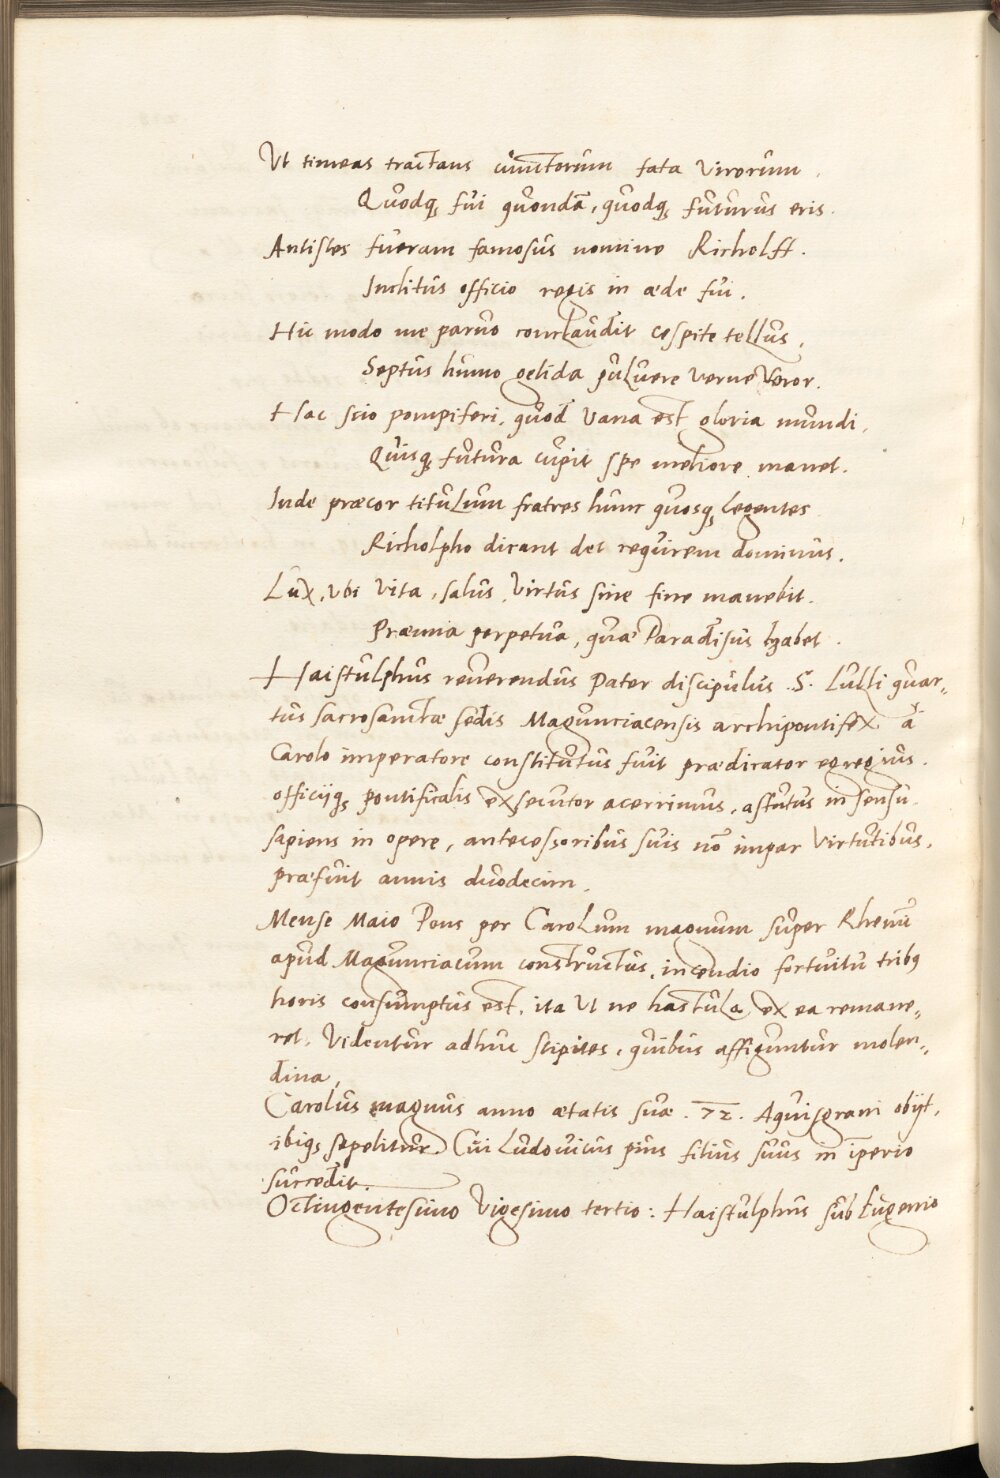 Ut timeas tractans cunctorum fata virorum.
Quodq́; fui quondā, quodq́; futurus eris.
Antistes fueram famosus nomine Richolff.
Inclitus officio regis in æde fui.
Hic modo me paruo conclaudit cespite tellus,
Septus humo gelida puluere verme voror.
Hac scio pompiferi, quod vana est gloria mundi,
Quisq; futura cupit spe meliore manet.
Inde præcor titulum fratres hunc quosq; legentes
Richolpho dicant det requiem dominus.
Lux, vbi vita, salus, virtus sine fine manebit.
Præmia perpetua, quæ Paradisus habet.
Haistulphus reuerendus Pater discipulus S. Lulli quar„
tus sacrosanctæ sedis Maguntiacensis archipontifex à
Carolo imperatore constitutus fuit prædicator egregius.
officijq; pontificalis exsecutor acerrimus, astutus in sensu
sapiens in opere, antecessoribus suis nō impar virtutibus,
præfuit annis duodecim.
Mense Maio Pons per Carolum magnum super Rhenū
apud Magunciacum constructus, incendio fortuitu tribq
horis consumptus est, ita ut ne hastula ex ea remane„
ret, Videntur adhuc stipites, quibus affiguntur molen„
dina,
Carolus magnus anno ætatis suæ .72. Aquisgrani obijt,
ibiq; sepelitur. Cui Ludouicus pius filius suus in īperio
succedit.
Octingentesimo vigesimo tertio: Haistulphus sub Eugenio